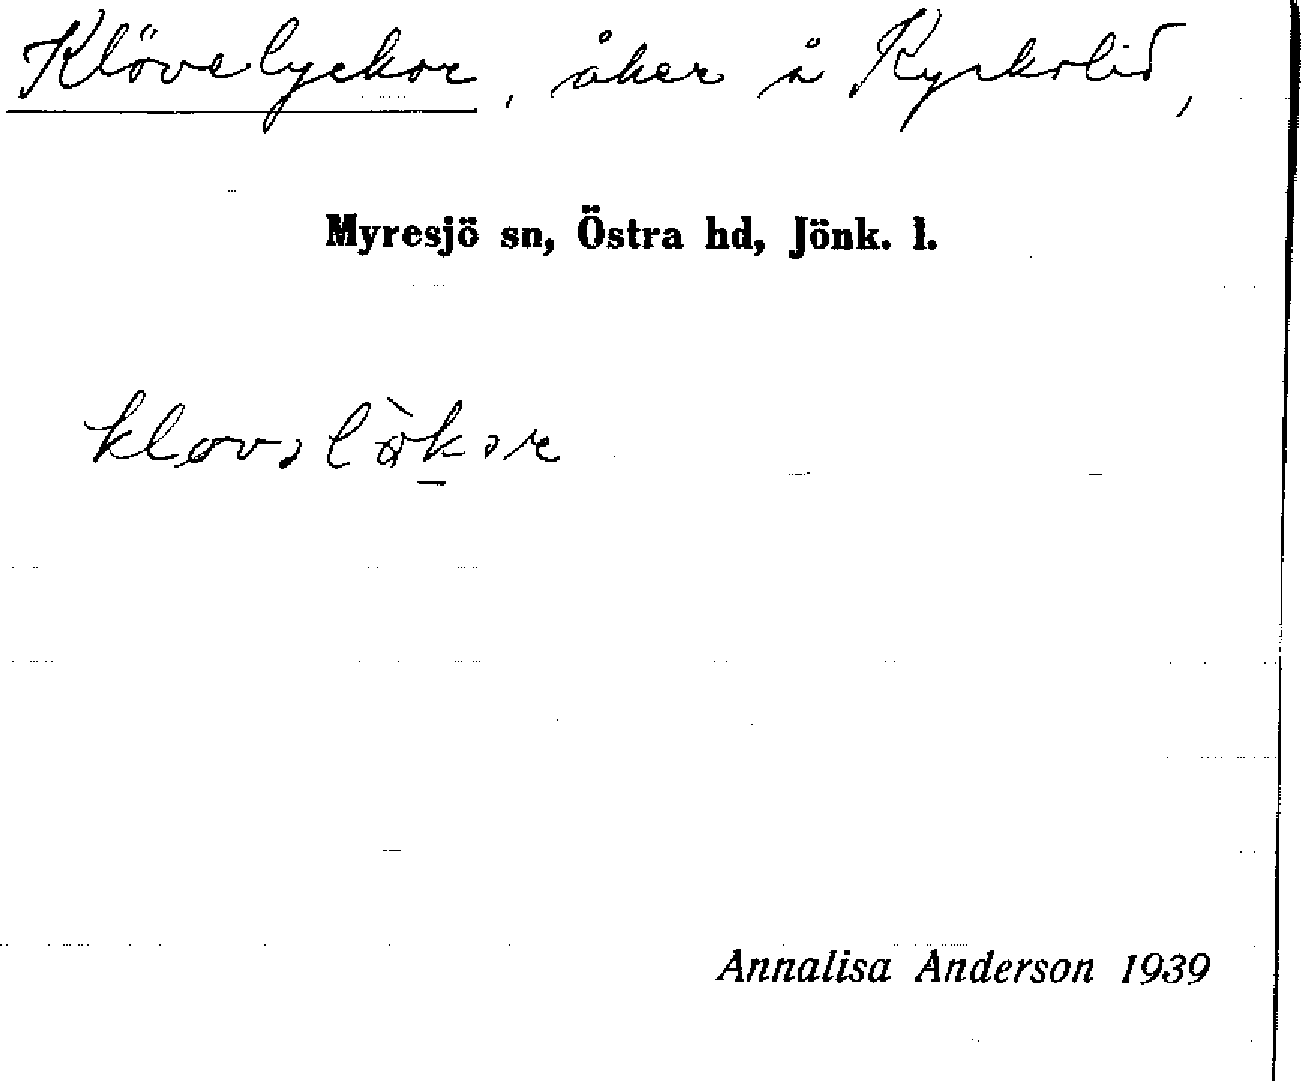 Klövelyckor, åker å Kyrkolid,
Myresjö sn, Östra hd, Jönk. l.
Annalisa Anderson 1939